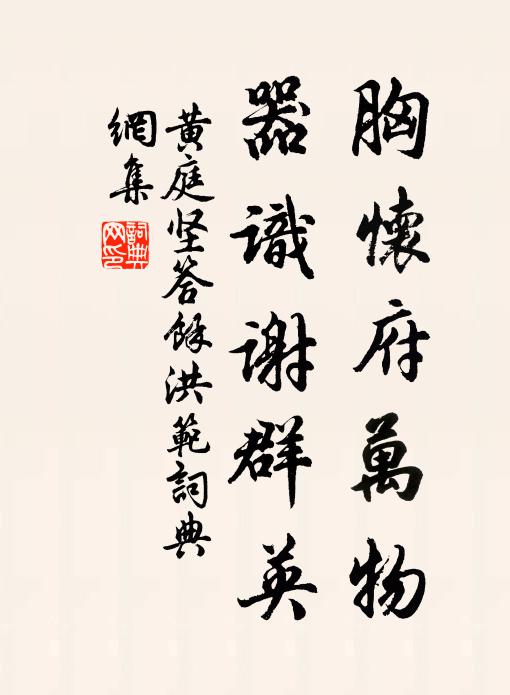 胸懷府萬物
器識谢群英
黄庭坚答餘洪範詞典
網集
詞典
网印